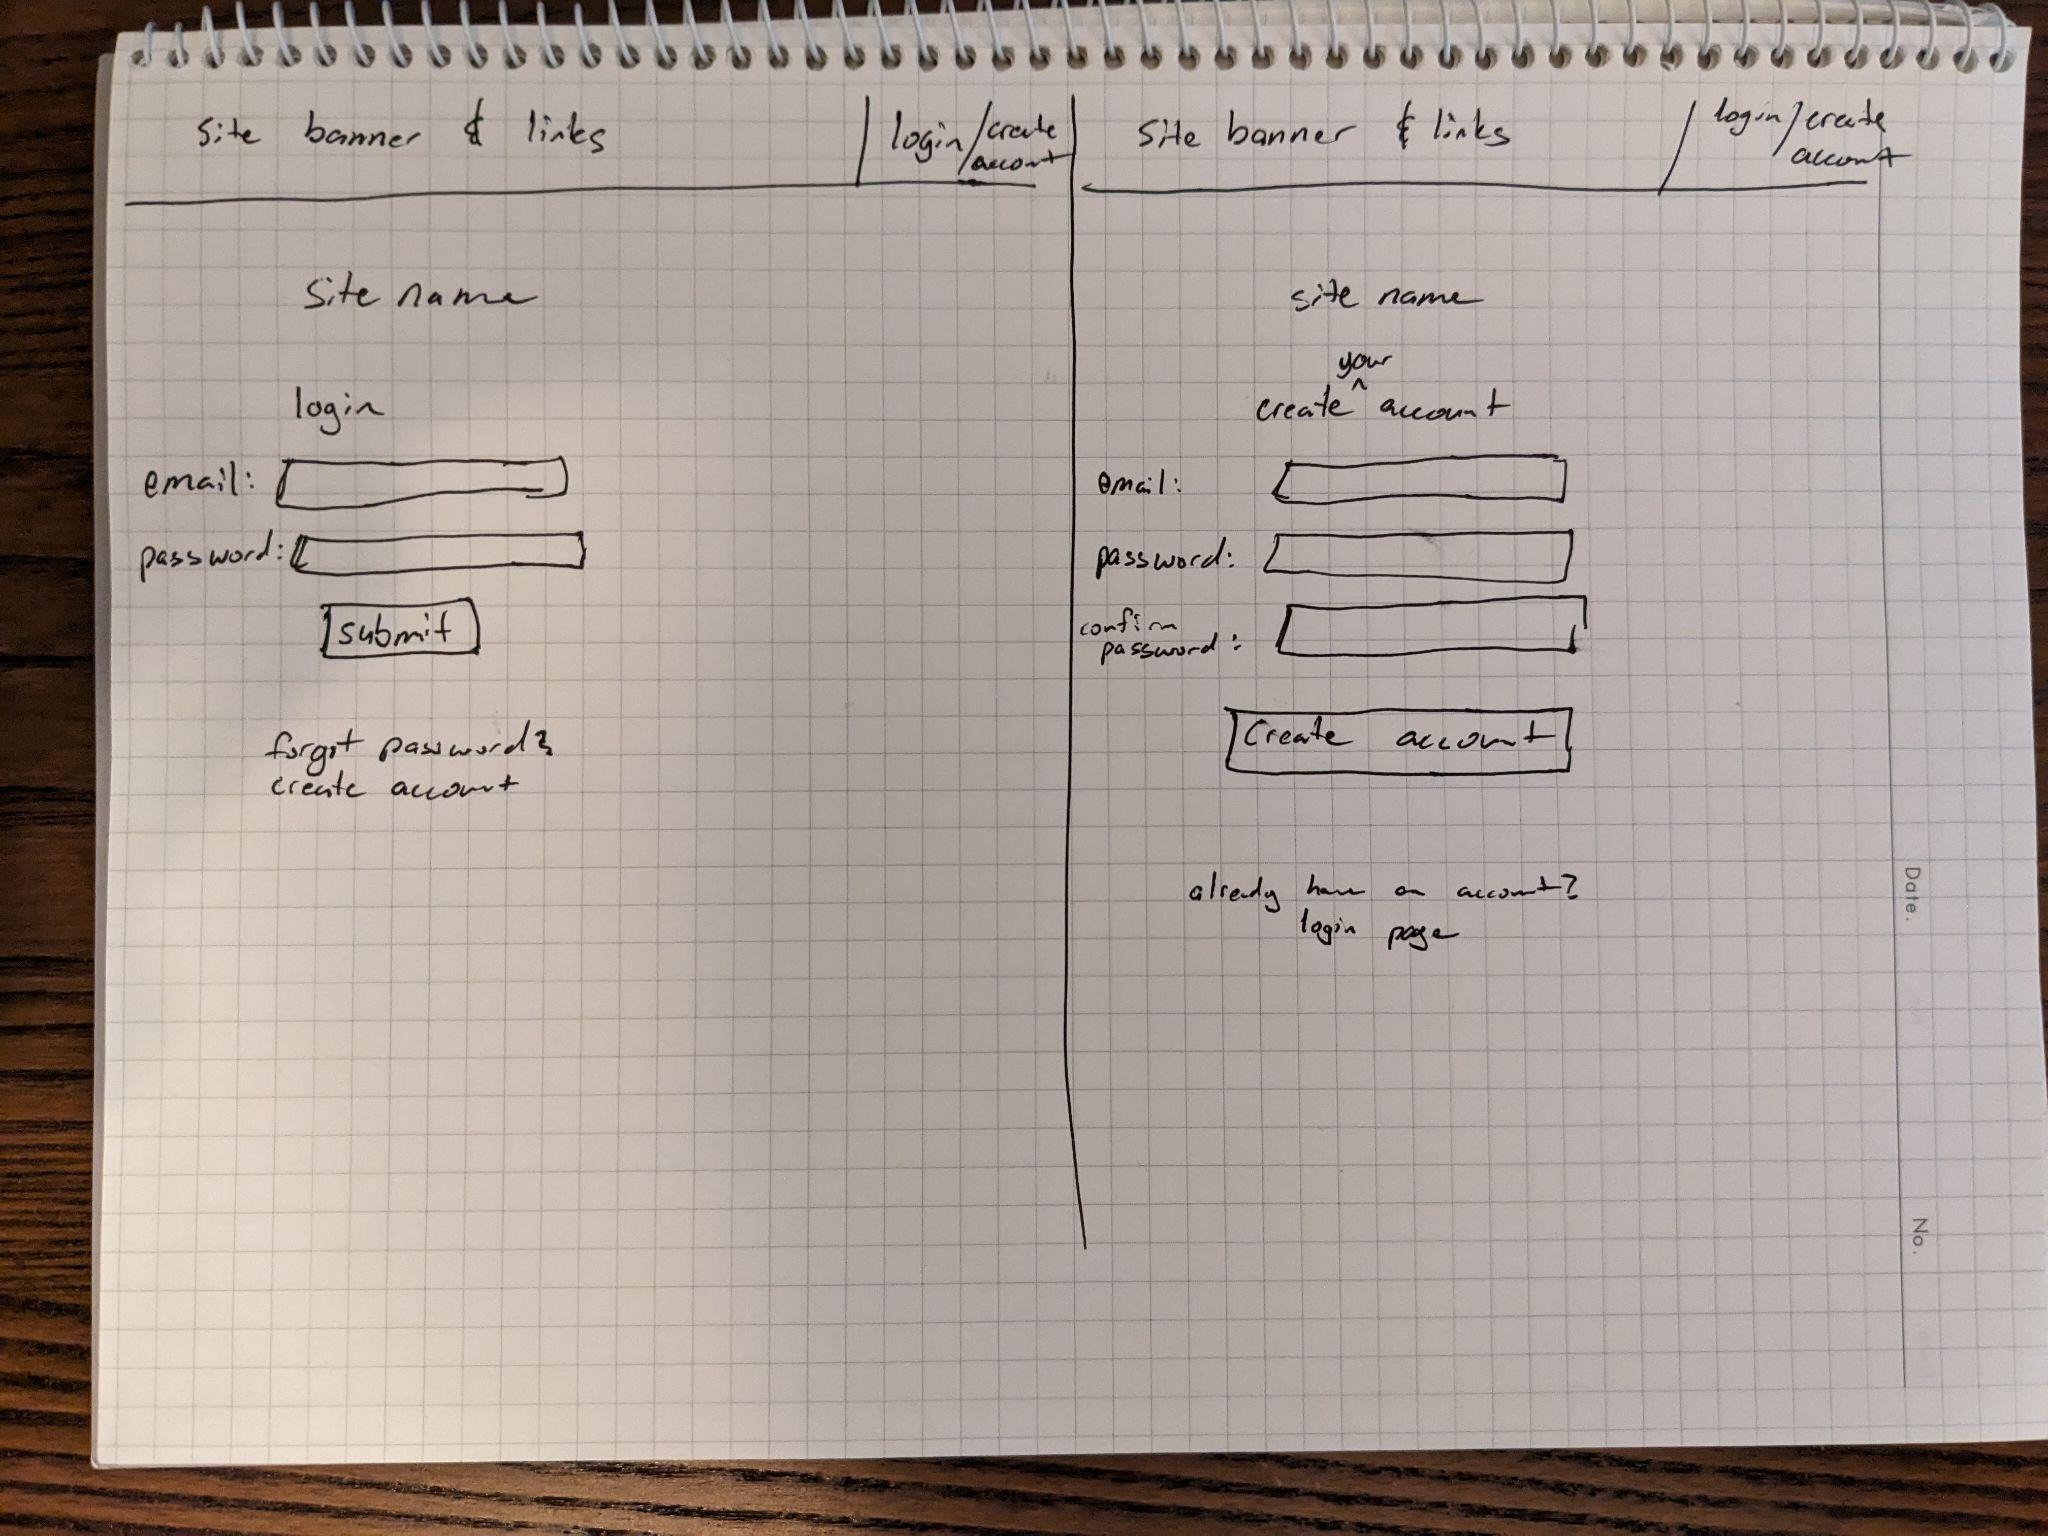 site banner & links
login/create
account
site name
login
email:
password:
submit
forgot password?
create account
site banner & links
login/create
account
site name
your
create ^ account
email:
password:
confirm
password:
Create account
already have an account?
login page
Date.
No.